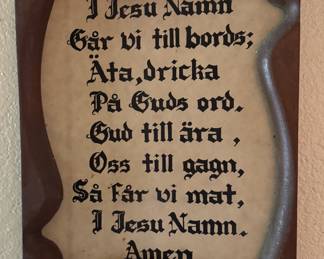 I Jesu Namn
Går vi till bords;
Äta, dricka
På Guds ord.
Gud till ära,
Oss till gagn,
Så får vi mat,
I Jesu Namn.
Amen